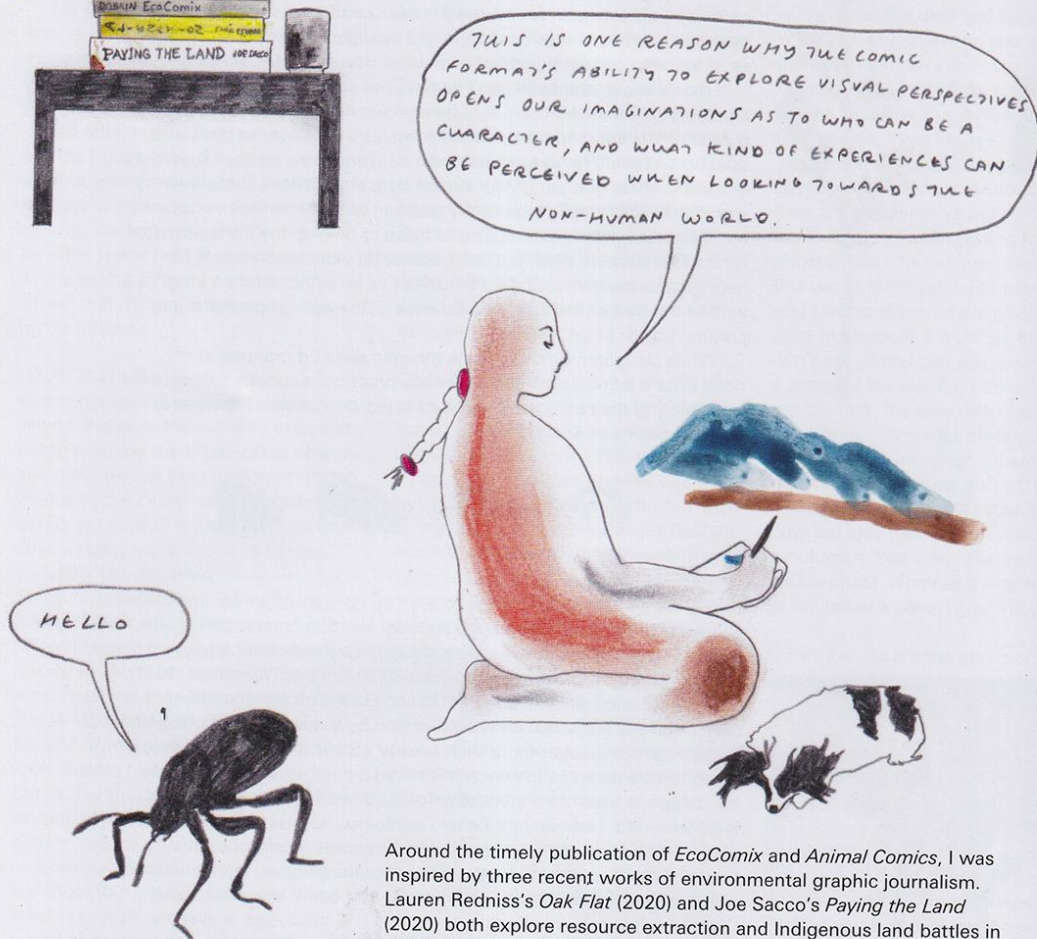 DOBRIN EcoComix
PAYING THE LAND JOE SACCO
THIS IS ONE REASON WHY THE COMIC
FORMAT'S ABILITY TO EXPLORE VISUAL PERSPECTIVES
OPENS OUR IMAGINATIONS AS TO WHO CAN BE A
CHARACTER, AND WHAT KIND OF EXPERIENCES CAN
BE PERCEIVED WHEN LOOKING TOWARDS THE
NON-HUMAN WORLD.
HELLO
Around the timely publication of EcoComix and Animal Comics, I was
inspired by three recent works of environmental graphic journalism.
Lauren Redniss's Oak Flat (2020) and Joe Sacco's Paying the Land
(2020) both explore resource extraction and Indigenous land battles in